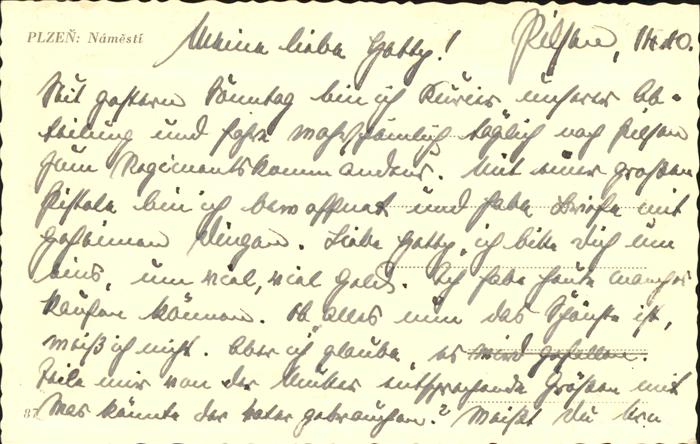 PLZEŇ: Náměstí
Meine liebe Hetty! Pilsen, 14.10.
Seit gestern Sonntag bin ich Kurier unserer Ab-
teilung und fahre wahrscheinlich täglich nach Pilsen
zum Regimentskommandeur. Mit einer großen
Pistole bin ich bewaffnet und habe Briefe mit
geheimen Dingen. Liebe Hetty, ich bitte Dich um
eins, um viel, viel Geld. Ich habe heute manches
kaufen können. Ob alles nun das Schönste ist,
weiß ich nicht. Aber ich glaube es wird gefallen.
Teile mir von der Mutter entsprechende Größen mit
Was könnte der Vater gebrauchen? Weißt Du
87